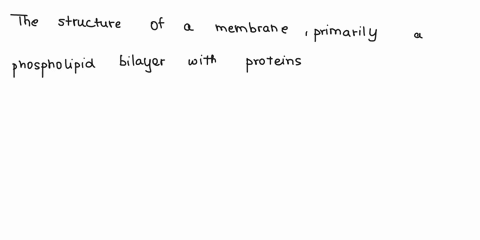 The structure of a membrane, primarily a
phospholipid bilayer with proteins